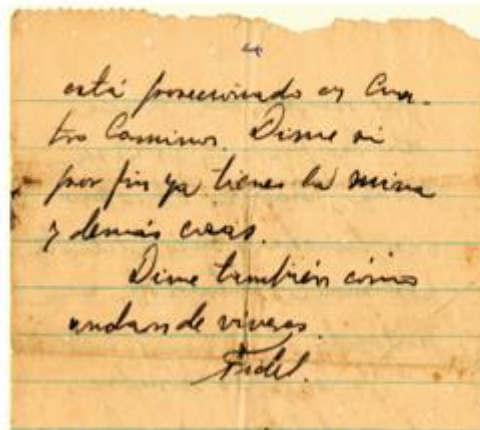 está posesionado en Cua-
tro Caminos. Dime si
por fin ya tienes la mina
y demás cosas.
Dime también cómo
andan de víveres.
Fidel.